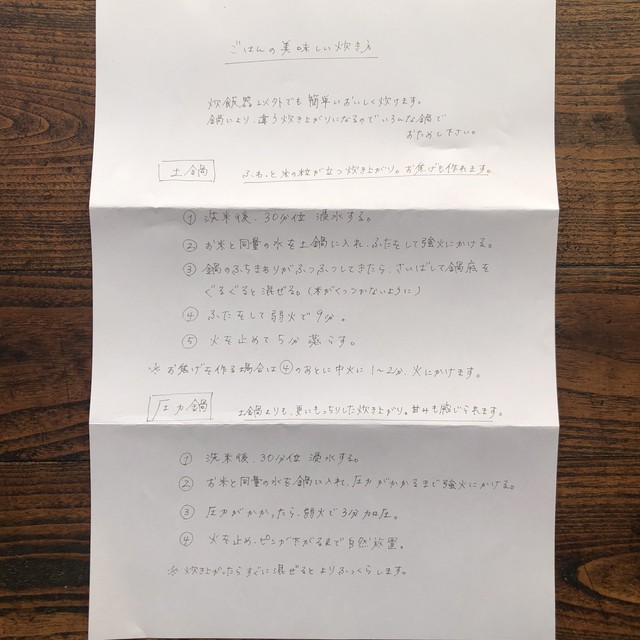 ごはんの美味しい炊き方
炊飯器以外でも簡単においしく炊けます。
鍋により、違う炊き上がりになるのでいろんな鍋で
おためし下さい。
土鍋
ふわっと米の粒が立つ炊き上がり。お焦げも作れます。
① 洗米後、30分位 浸水する。
② お米と同量の水を土鍋に入れ、ふたをして強火にかける。
③ 鍋のふちまわりがふつふつしてきたら、さいばしで鍋底を
ぐるぐると混ぜる。(米がくっつかないように)
④ ふたをして弱火で9分。
⑤ 火を止めて5分 蒸らす。
※ お焦げを作る場合は④のあとに中火に1〜2分、火にかけます。
圧力鍋
土鍋よりも、更にもっちりした炊き上がり。甘みも感じられます。
① 洗米後、30分位 浸水する。
② お米と同量の水を鍋に入れ、圧力がかかるまで強火にかける。
③ 圧力がかかったら、弱火で3分加圧。
④ 火を止め、ピンが下がるまで自然放置。
※ 炊き上がったらすぐに混ぜるとよりふっくらします。